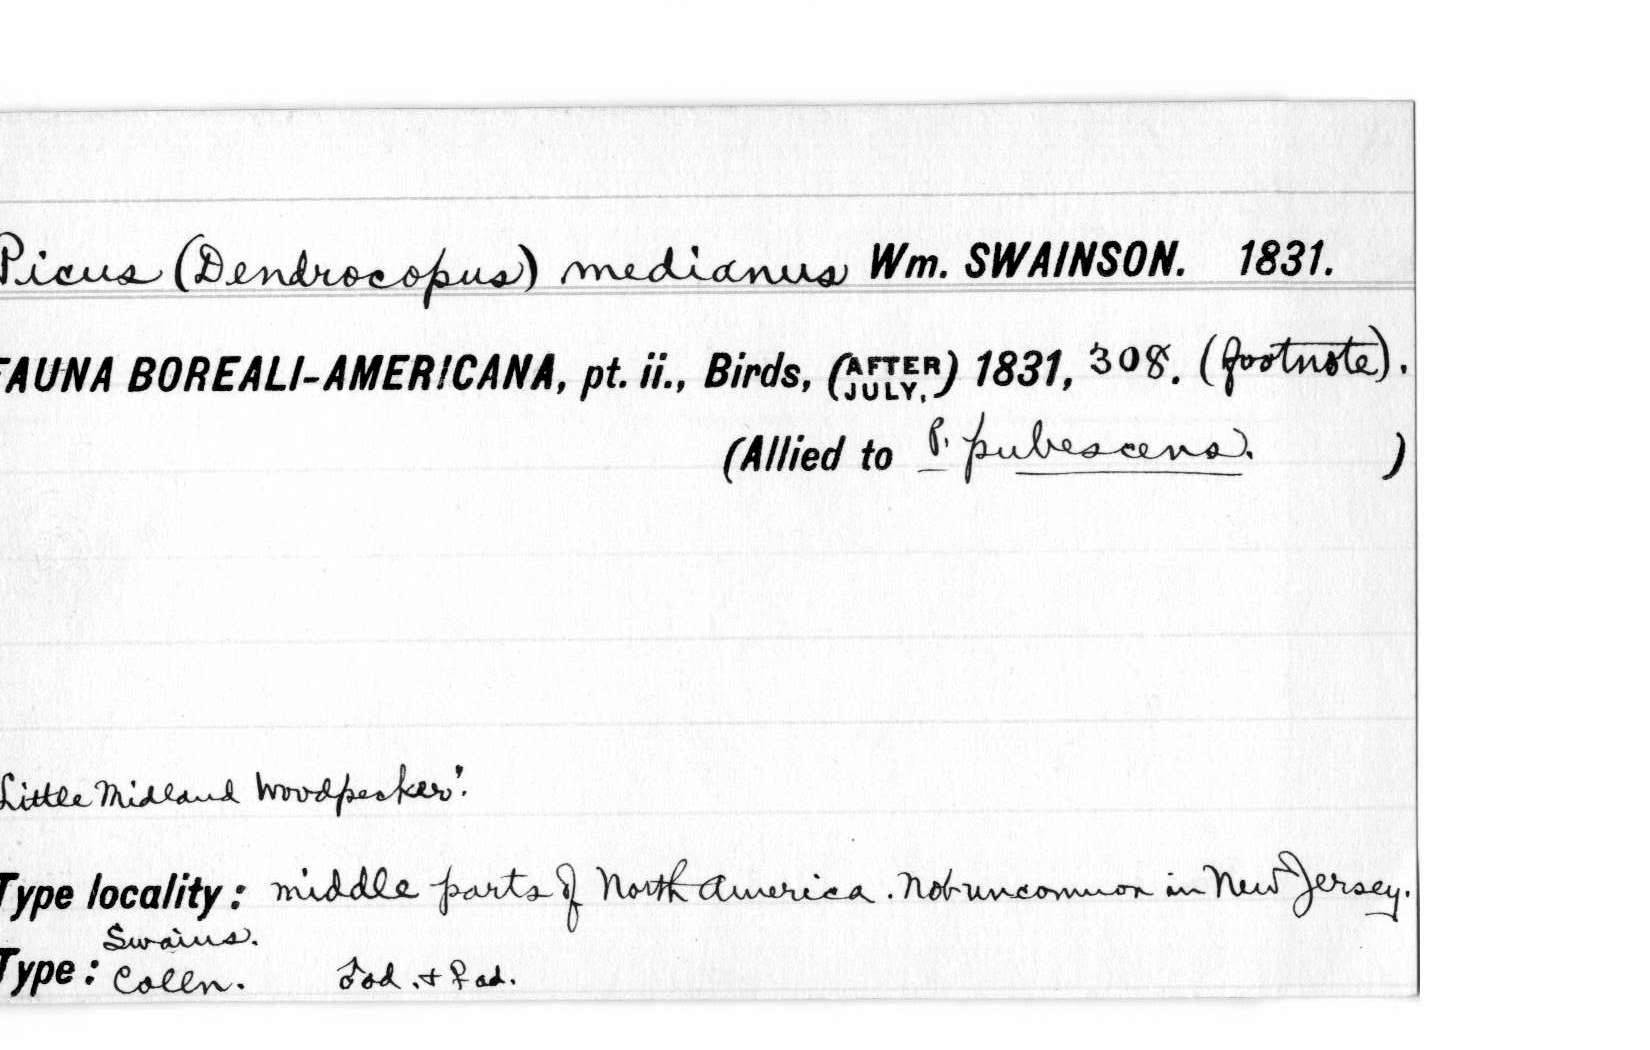 Picus (Dendrocopus) medianus Wm. SWAINSON. 1831.
FAUNA BOREALI-AMERICANA, pt. ii., Birds, (AFTER JULY,) 1831, 308. (footnote).
(Allied to P. pubescens. )
Little Midland Woodpecker".
Type locality: middle parts of North America. Not uncommon in New Jersey.
Swains.
Type: Colln. ♂ ad. + ♀ ad.